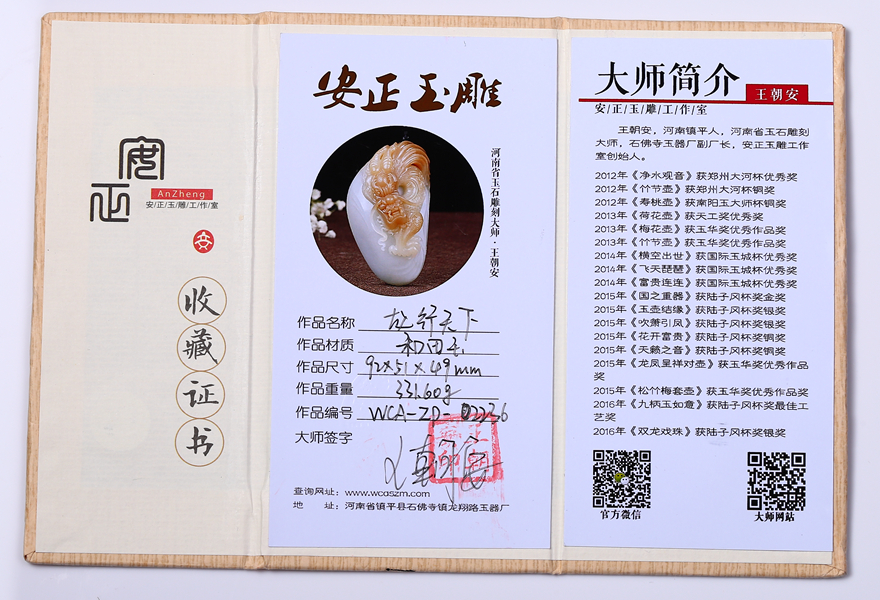 安正
AnZheng
安/正/玉/雕/工/作/室
收藏证书
安正玉雕
河南省玉石雕刻大师·王朝安
作品名称
行天下
作品材质 和田玉
作品尺寸 92×51×49mm
作品重量 331.60g
作品编号 WCA-ZD-02236
大师签字
查询网址：www.wcaszm.com
地 址：河南省镇平县石佛寺镇龙翔路玉器厂
大师简介
王朝安
安/正/玉/雕/工/作/室
王朝安，河南镇平人，河南省玉石雕刻
大师，石佛寺玉器厂副厂长，安正玉雕工作
室创始人。
2012年《净水观音》获郑州大河杯优秀奖
2012年《竹节壶》获郑州大河杯铜奖
2012年《寿桃壶》获南阳玉大师杯铜奖
2013年《荷花壶》获天工奖优秀奖
2013年《梅花壶》获玉华奖优秀作品奖
2013年《竹节壶》获玉华奖优秀作品奖
2014年《横空出世》获国际玉城杯优秀奖
2014年《飞天琵琶》获国际玉城杯优秀奖
2014年《富贵连连》获国际玉城杯优秀奖
2015年《国之重器》获陆子冈杯奖金奖
2015年《玉壶结缘》获陆子冈杯奖银奖
2015年《吹箫引凤》获陆子冈杯奖银奖
2015年《花开富贵》获陆子冈杯奖铜奖
2015年《天籁之音》获陆子冈杯奖铜奖
2015年《龙凤呈祥对壶》获玉华奖优秀作品
奖
2015年《松竹梅套壶》获玉华奖优秀作品奖
2016年《九柄玉如意》获陆子冈杯奖最佳工
艺奖
2016年《双龙戏珠》获陆子冈杯奖银奖
官方微信
大师网站